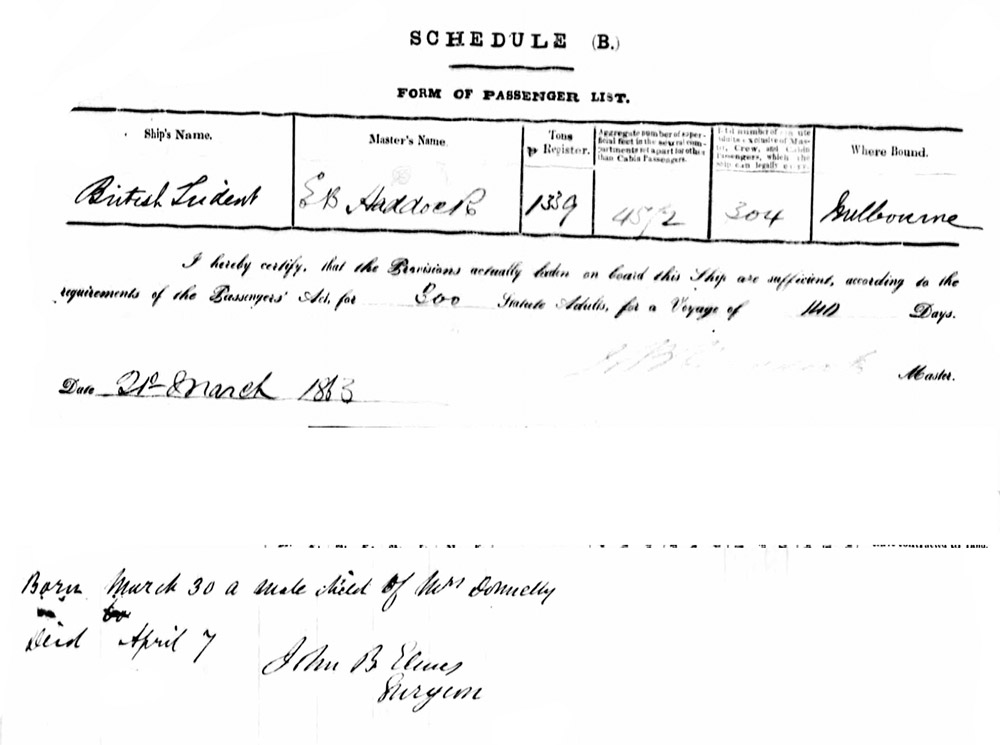 SCHEDULE (B.)
FORM OF PASSENGER LIST.
Ship's Name.
Master's Name
Tons
Register.
Aggregate number of super-
ficial feet in the several com-
partments set apart for other
than Cabin Passengers.
number of
adults exclusive of Mas-
ter, Crew, and Cabin
Passengers, which the
ship can legally carry.
Where Bound.
British Trident
E B Haddock
1339
4572
304
Melbourne
I hereby certify, that the Provisions actually laden on board this Ship are sufficient, according to the
requirements of the Passengers' Act, for 300 Statute Adults, for a Voyage of 140 Days.
Master.
Date 21st March 1863
Born March 30 a male child of Mrs Donnelly
Died April 7
John B
Surgeon